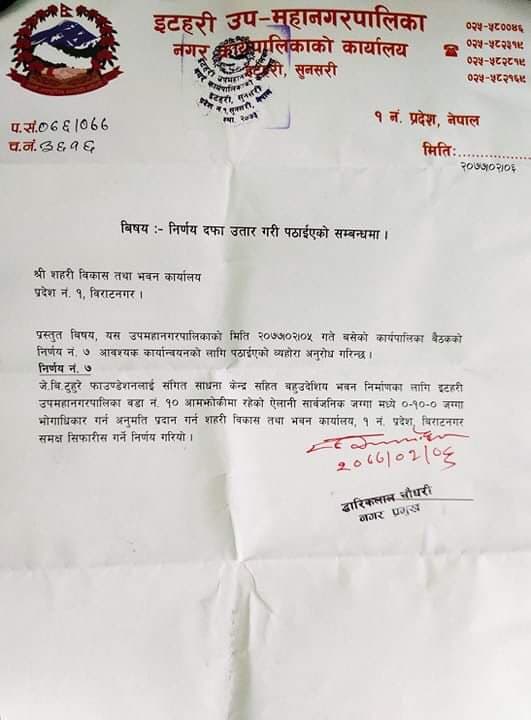 इटहरी उप-महानगरपालिका
नगर कार्यपालिकाको कार्यालय
इटहरी, सुनसरी
०२५-५८००४६
०२५-५८२३१९
०२५-५८२८१९
०२५-५८२१६९
प.सं.०७६/०७७
१ नं. प्रदेश, नेपाल
च.नं.३६१६
मितिः
२०७७/०२/०६
बिषय :- निर्णय दफा उतार गरी पठाईएको सम्बन्धमा ।
श्री शहरी विकास तथा भवन कार्यालय
प्रदेश नं. १, विराटनगर ।
प्रस्तुत विषय, यस उपमहानगरपालिकाको मिति २०७७/०२/०५ गते बसेको कार्यपालिका बैठकको
निर्णय नं. ७ आवश्यक कार्यान्वयनको लागि पठाईएको व्यहोरा अनुरोध गरिन्छ।
निर्णय नं. ७
जे.बि.टुहुरे फाउण्डेशनलाई संगित साधना केन्द्र सहित बहुउदेशिय भवन निर्माणका लागि इटहरी
उपमहानगरपालिका वडा नं. १० आमझोकीमा रहेको ऐलानी सार्वजनिक जग्गा मध्ये ०-१०-० जग्गा
भोगाधिकार गर्न अनुमति प्रदान गर्न शहरी विकास तथा भवन कार्यालय, १ नं. प्रदेश, विराटनगर
समक्ष सिफारीस गर्ने निर्णय गरियो ।
२०७७/०२/०६
द्वारिकलाल चौधरी
नगर प्रमुख